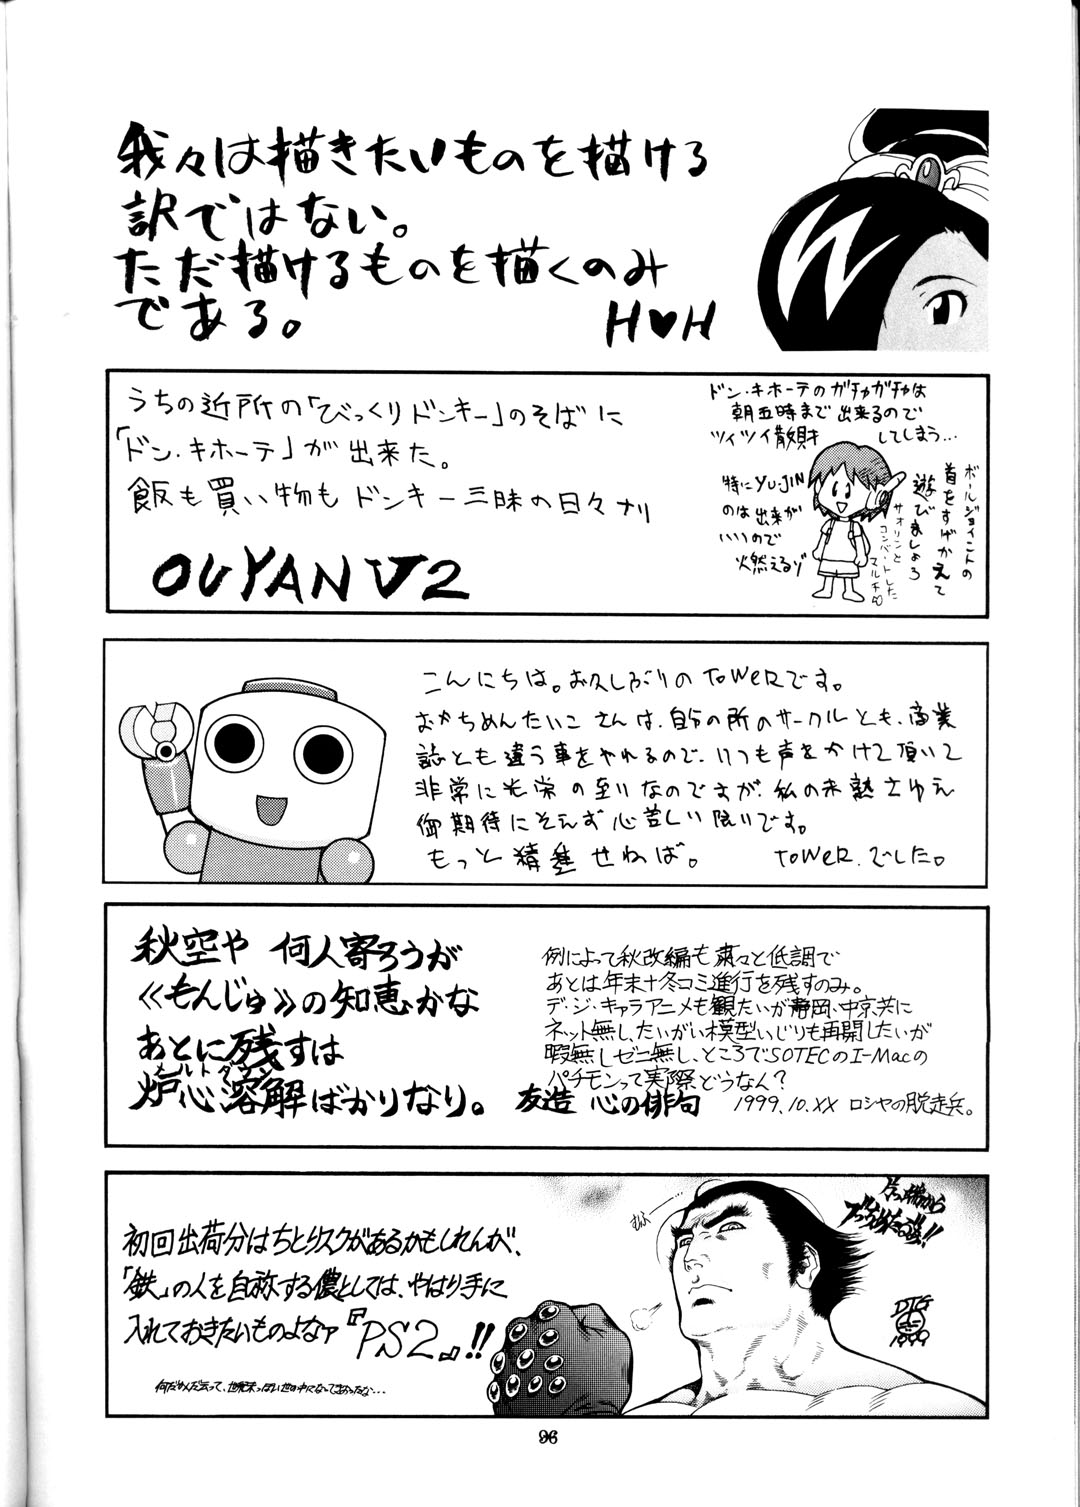 我々は描きたいものを描ける
訳ではない。
ただ描けるものを描くのみ
である。
H♥H
うちの近所の「びっくりドンキー」のそばに
「ドン・キホーテ」が出来た。
飯も買い物もドンキー三昧の日々ナリ
OUYAN V2
ドン・キホーテのガチャガチャは
朝五時まで出来るので
ツイツイ散財してしまう…
特にYUJIN
のは出来が
いいので
火燃えるゾ
ボールジョイントの
首をすげかえて
遊びましょう
サオリンと
コンバートした
マルチ
こんにちは。お久しぶりのToWeRです。
おかちめんたいこさんは、自分の所のサークルとも、商業
誌とも違う事をやれるので、いつも声をかけて頂いて
非常に光栄の至りなのですが、私の未熟さゆえ
御期待にそえず心苦しい限りです。
もっと精進せねば。
ToWeR.でした。
秋空や 何人寄ろうが
《もんじゅ》の知恵かな
あとに残すは
メルトダウン
炉心溶解ばかりなり。 友造 心の俳句
例によって秋改編も粛々と低調で
あとは年末+冬コミ進行を残すのみ。
デ・ジ・キャラアニメも観たいが静岡、中京共に
ネット無し、たいがい模型いじりも再開したいが
暇無しゼニ無し、ところでSOTECのI-Macの
パチモンって実際どうなん?
1999.10.XX ロシヤの脱走兵。
初回出荷分はちとリスクがあるかもしれんが、
「鉄」の人を自称する儂としては、やはり手に
入れておきたいものよなァ『PS2』!!
むふぅ
DTG
1999
96